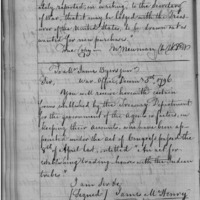 stating respecting, in writing, to the Secretary
of War, that it may be lodged with the Treas-
urer of the United States, to be drawn out as
wanted for new purchases.
True Copy
To all James Byers Esqr.
Sir, War Office, June 3d. 1796
You will receive herewith certain
forms established by the Treasury Department
for the government of the Agents of factories, in
keeping their accounts, who have been ap-
pointed under the act of Congress passed the
18th of April last, entitled "An act for
establishing trading houses with the Indian
tribes."
I am Sir &c
(Signed) James McHenry